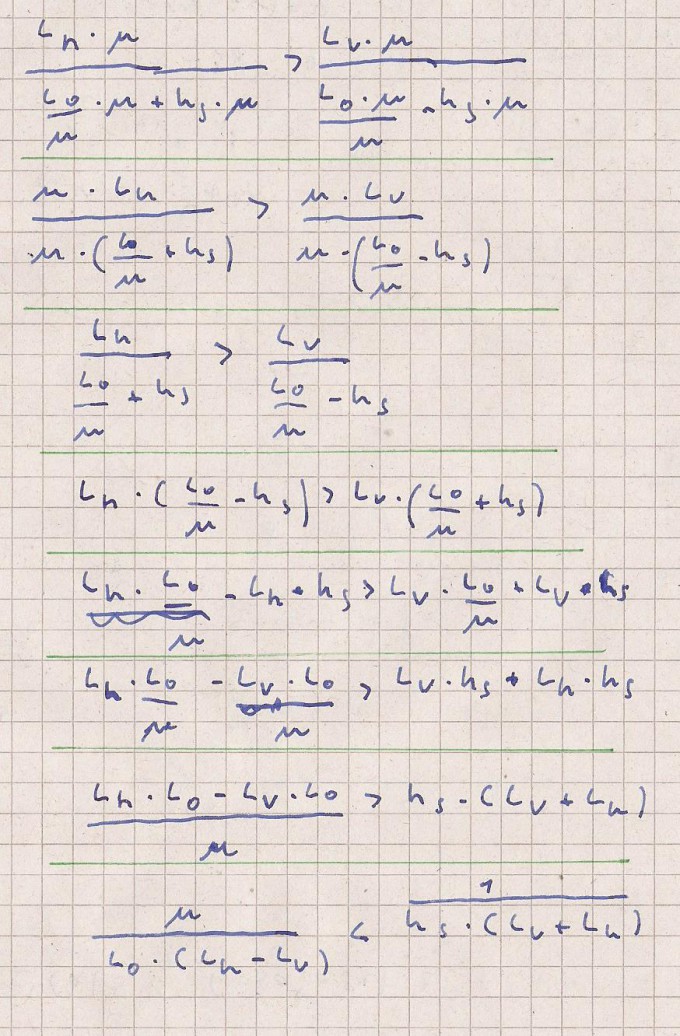 (L_h · μ) / ((L_0/μ) · μ + h_s · μ) > (L_v · μ) / ((L_0 · μ)/μ - h_s · μ)
(μ · L_h) / (μ · (L_0/μ + h_s)) > (μ · L_v) / (μ · (L_0/μ - h_s))
L_h / (L_0/μ + h_s) > L_v / (L_0/μ - h_s)
L_h · (L_0/μ - h_s) > L_v · (L_0/μ + h_s)
L_h · L_0/μ - L_h · h_s > L_v · L_0/μ + L_v · h_s
L_h · L_0/μ - (L_v · L_0)/μ > L_v · h_s + L_h · h_s
(L_h · L_0 - L_v · L_0)/μ > h_s · (L_v + L_h)
μ / (L_0 · (L_h - L_v)) < 1 / (h_s · (L_v + L_h))